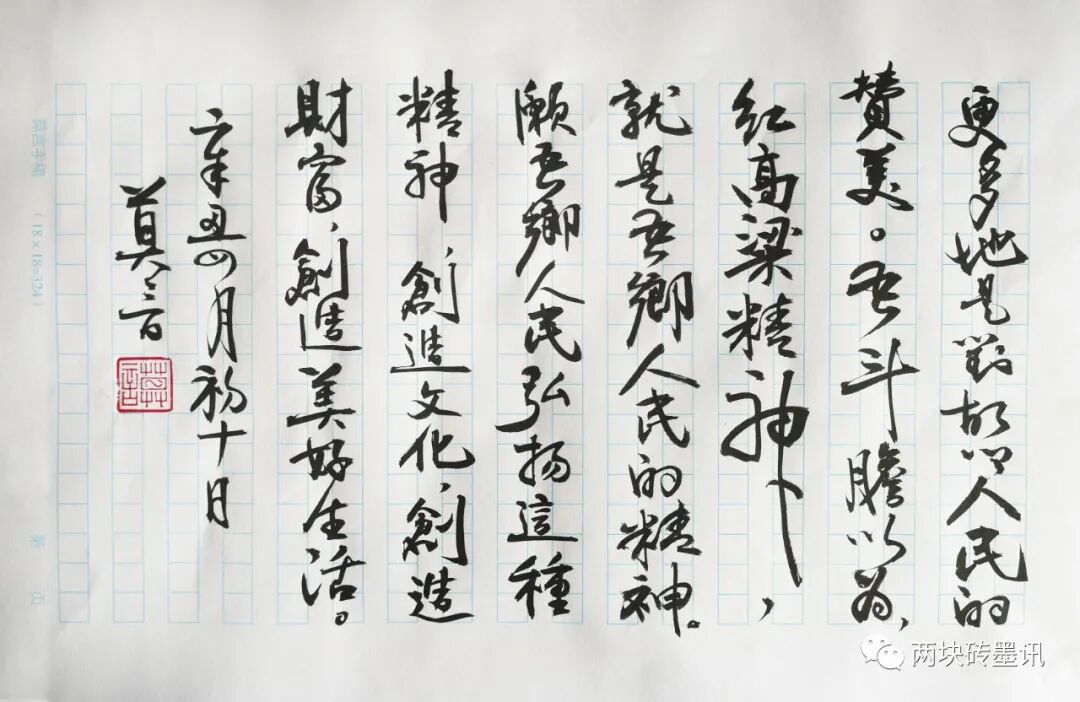 更多地是對故鄉人民的
贊美。吾斗膽以為，
紅高粱精神，
就是吾鄉人民的精神。
願吾鄉人民弘揚這種
精神、創造文化、創造
財富、創造美好生活。
辛丑四月初十日
莫言
莫言手稿 （18×18=324） 第 页
两块砖墨讯